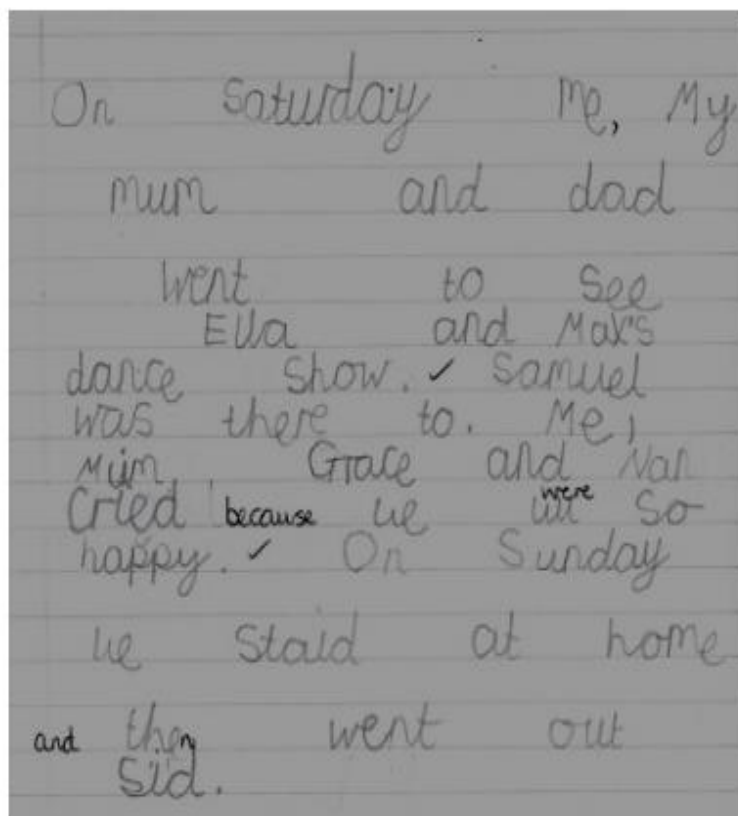 On Saturday Me, My
mum and dad
went to see
Ella and Max's
dance show. ✓ Samuel
was there to. Me,
Mum, Grace and Nan
Cried because we were so
happy. ✓ On Sunday
we staid at home
and then went out
Sid.